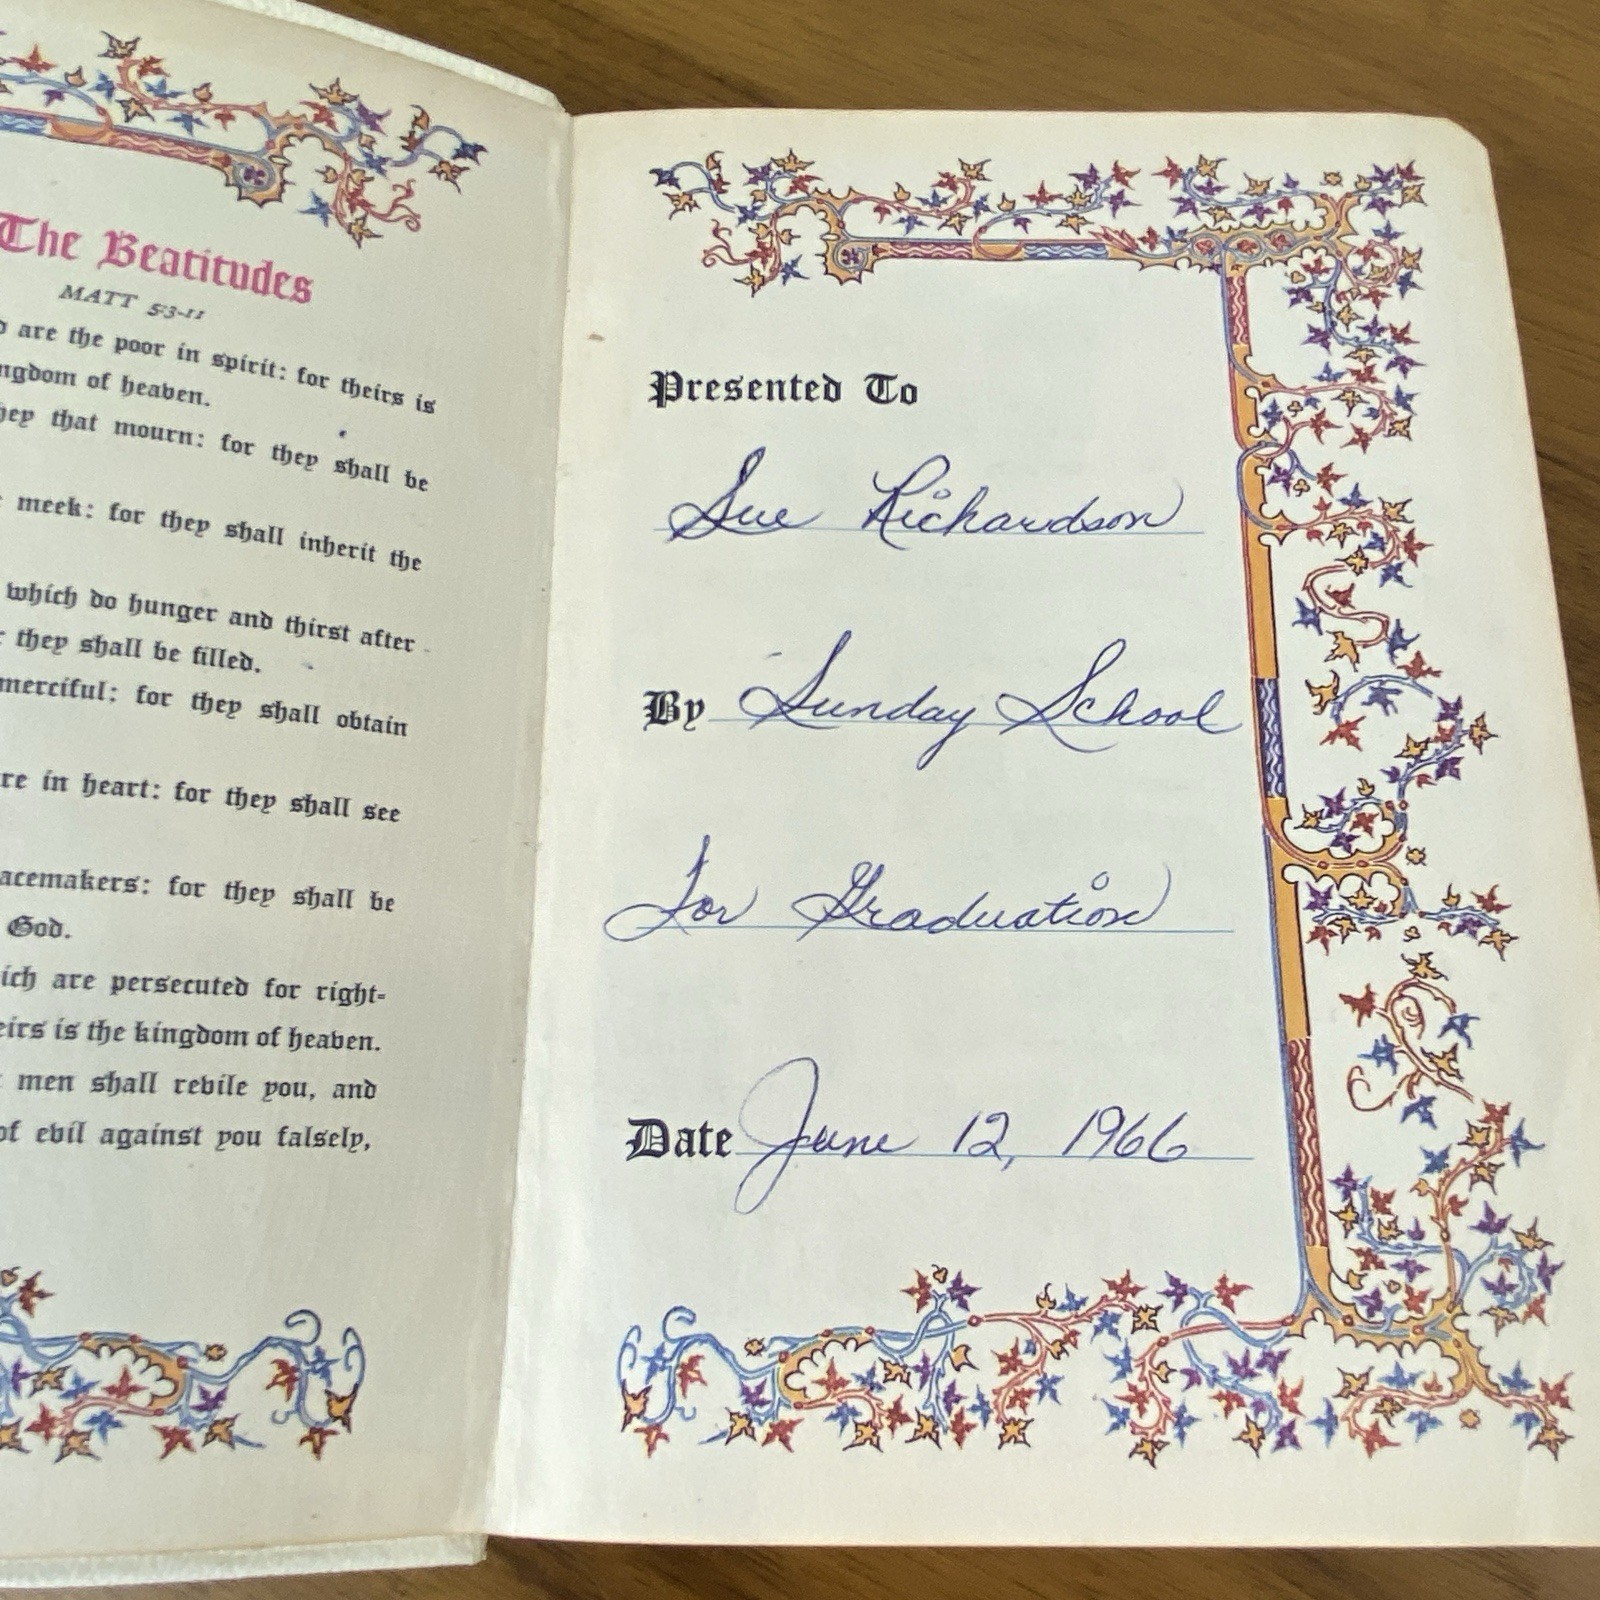 The Beatitudes
MATT 5:3-11
are the poor in spirit: for theirs is
of heaven.
that mourn: for they shall be
meek: for they shall inherit the
which do hunger and thirst after
they shall be filled.
merciful: for they shall obtain
in heart: for they shall see
for they shall be
God.
are persecuted for right-
is the kingdom of heaven.
men shall revile you, and
of evil against you falsely,
Presented To
Sue Richardson
By Sunday School
For Graduation
Date June 12, 1966